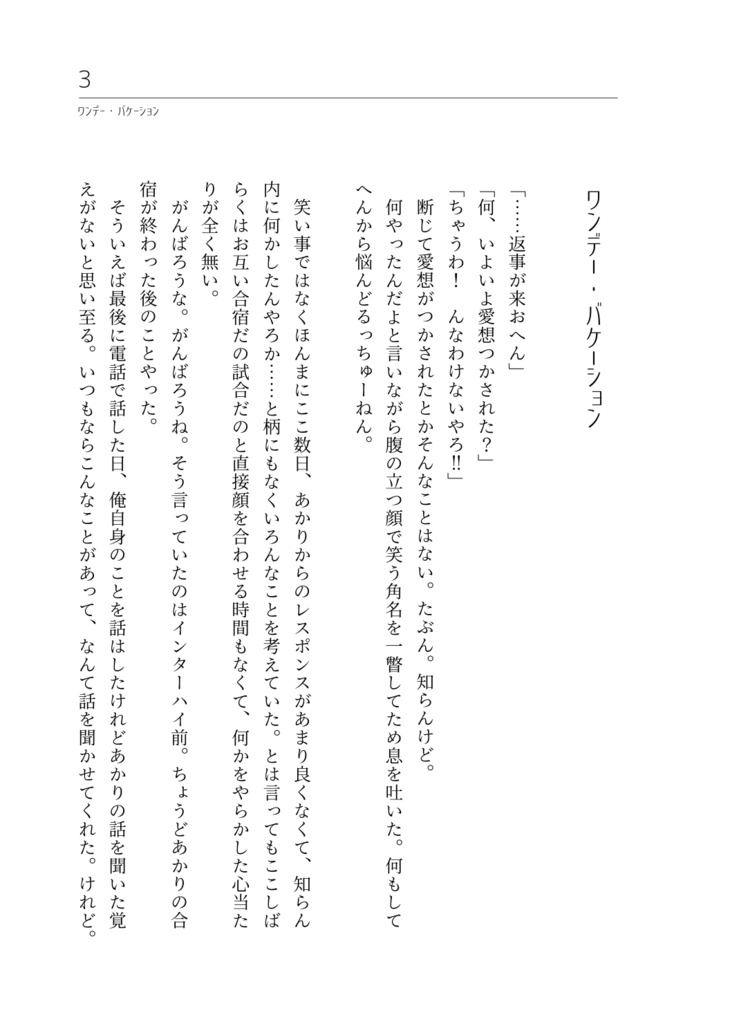 3
ワンデー・バケーション
ワンデー・バケーション
「……返事が来おへん」
「何、いよいよ愛想つかされた？」
「ちゃうわ！　んなわけないやろ!!」
　断じて愛想がつかされたとかそんなことはない。たぶん。知らんけど。
　何やったんだよと言いながら腹の立つ顔で笑う角名を一瞥してため息を吐いた。何もして
へんから悩んどるっちゅーねん。
　笑い事ではなくほんまにここ数日、あかりからのレスポンスがあまり良くなくて、知らん
内に何かしたんやろか……と柄にもなくいろんなことを考えていた。とは言ってもここしば
らくはお互い合宿だの試合だのと直接顔を合わせる時間もなくて、何かをやらかした心当た
りが全く無い。
　がんばろうな。がんばろうね。そう言っていたのはインターハイ前。ちょうどあかりの合
宿が終わった後のことやった。
　そういえば最後に電話で話した日、俺自身のことを話はしたけれどあかりの話を聞いた覚
えがないと思い至る。いつもならこんなことがあって、なんて話を聞かせてくれた。けれど。